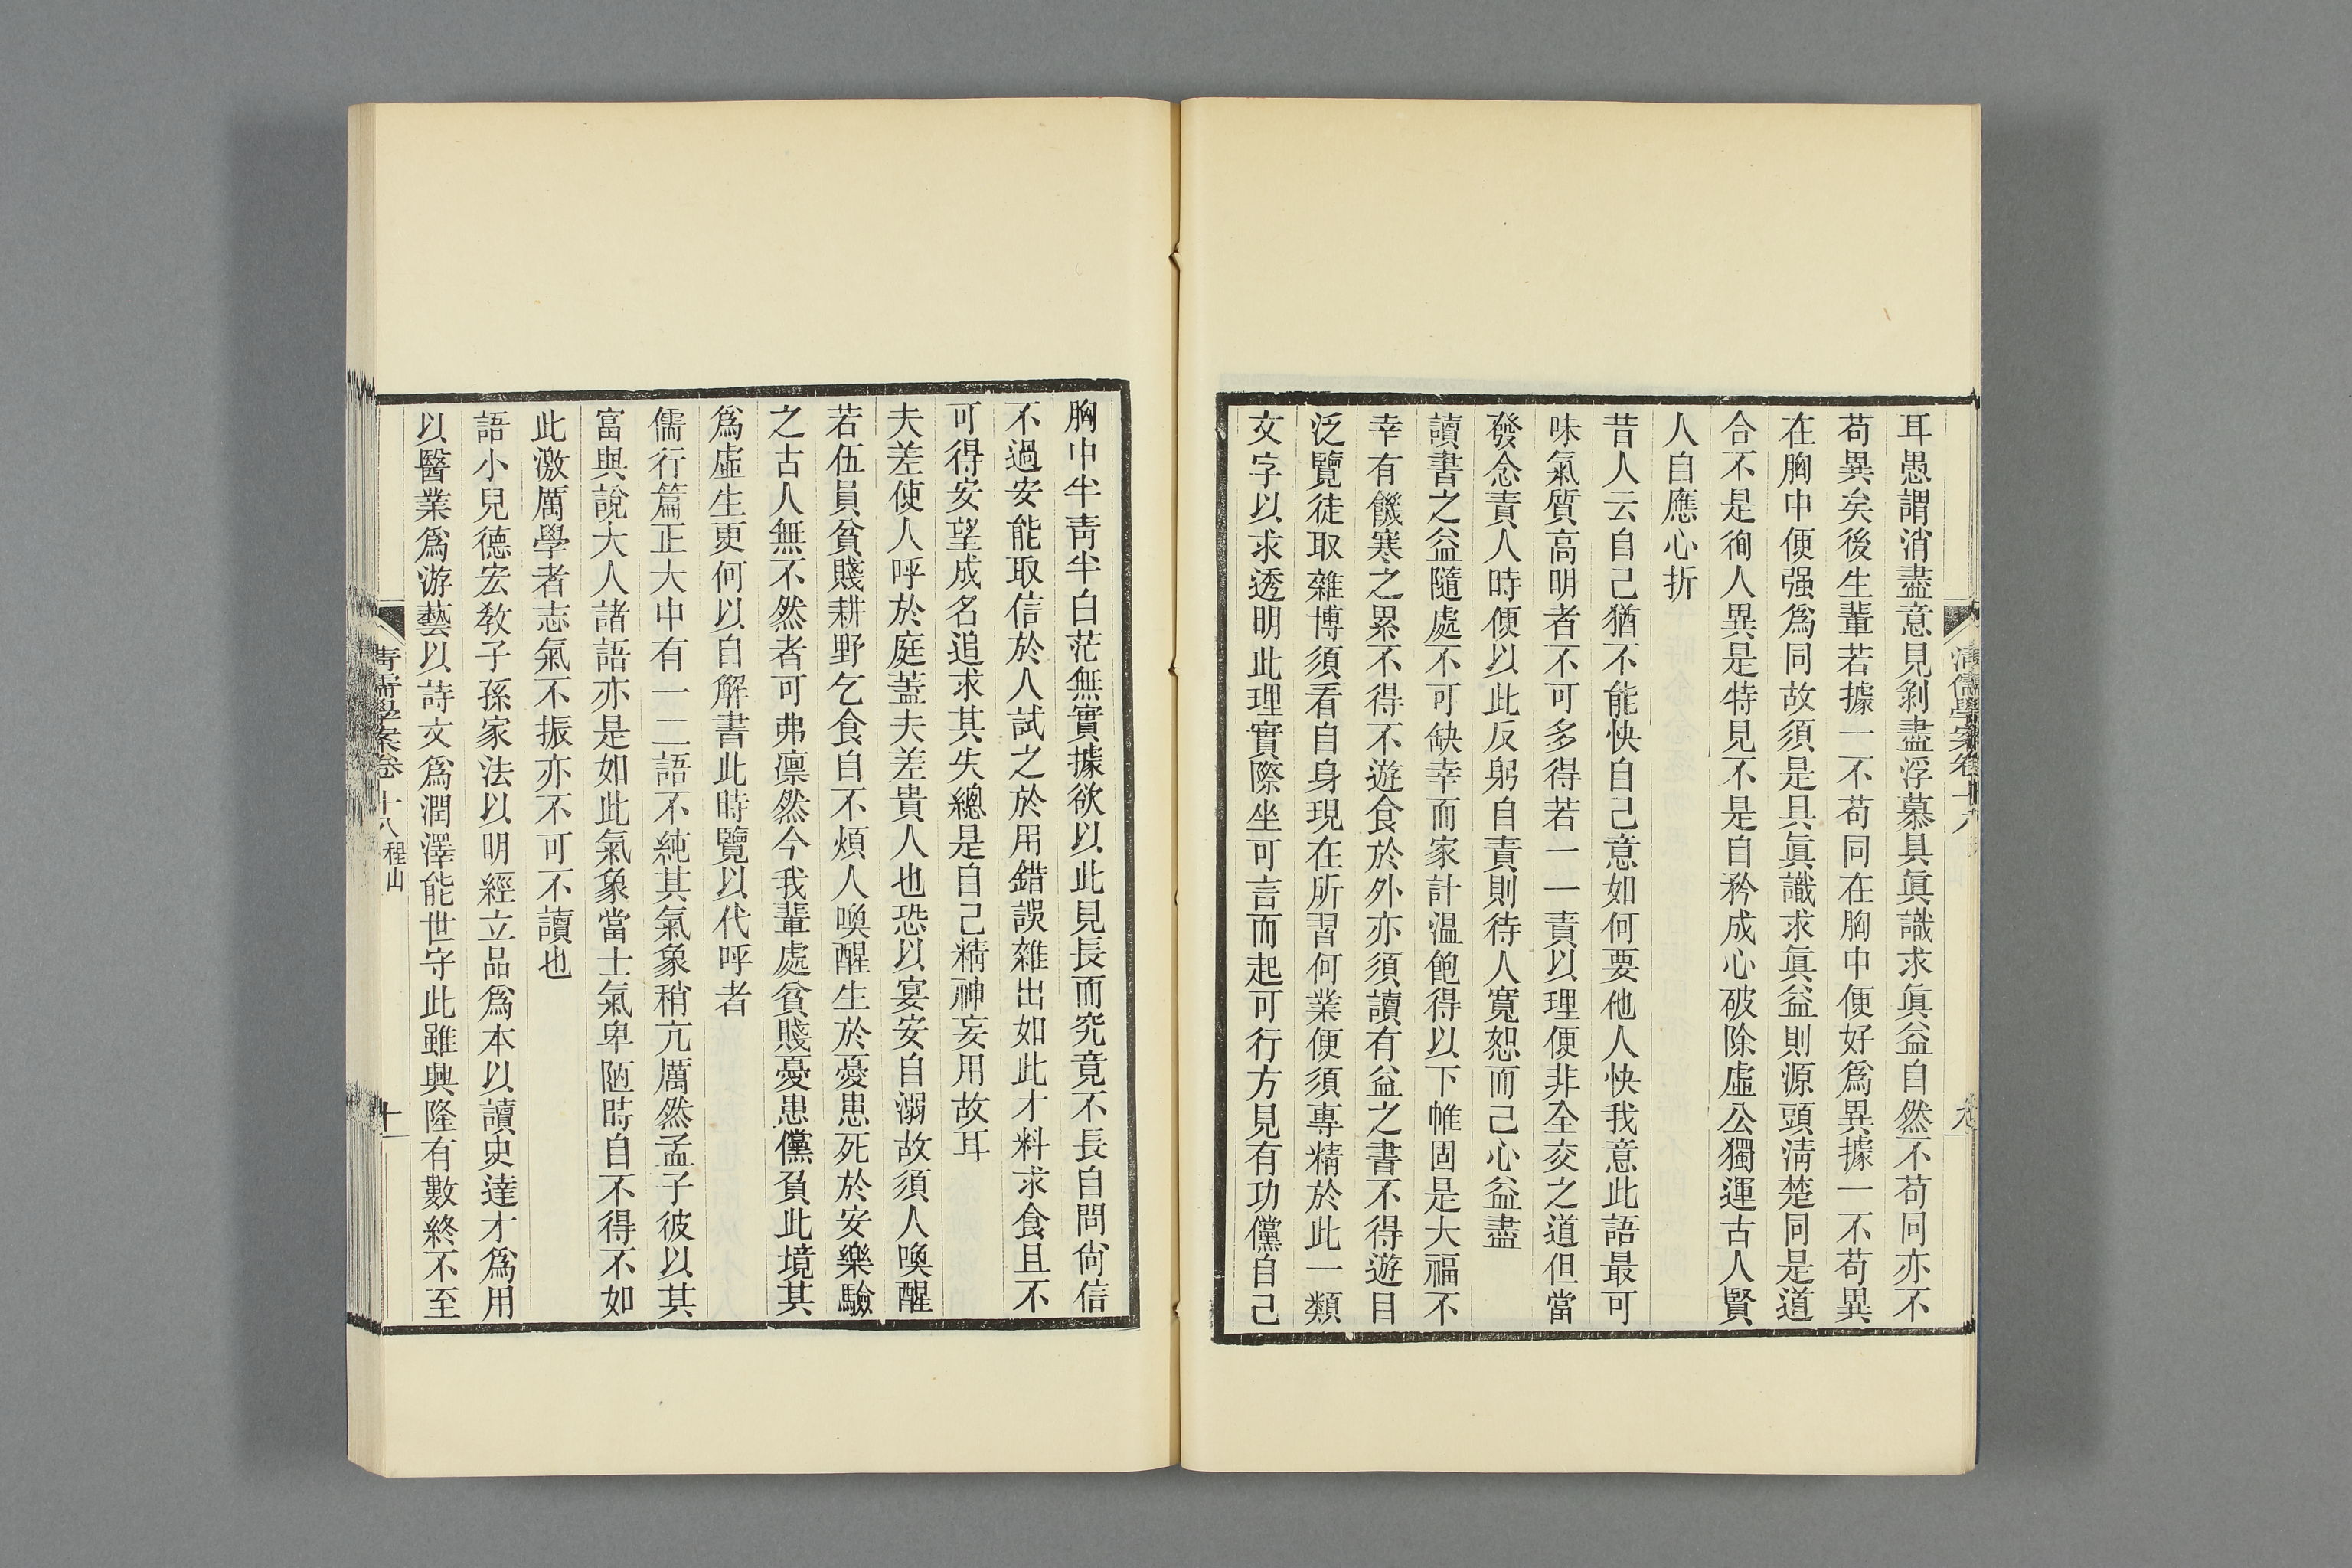 清儒學案卷十八
九
耳愚謂消盡意見剝盡浮慕具眞識求眞益自然不苟同亦不
苟異矣後生輩若據一不苟同在胸中便好爲異據一不苟異
在胸中便强爲同故須是具眞識求眞益則源頭淸楚同是道
合不是徇人異是特見不是自矜成心破除虛公獨運古人賢
人自應心折
昔人云自己猶不能快自己意如何要他人快我意此語最可
味氣質高明者不可多得若一一責以理便非全交之道但當
發念責人時便以此反躬自責則待人寬恕而己心益盡
讀書之益隨處不可缺幸而家計温飽得以下帷固是大福不
幸有饑寒之累不得不遊食於外亦須讀有益之書不得遊目
泛覽徒取雜博須看自身現在所習何業便須專精於此一類
文字以求透明此理實際坐可言而起可行方見有功儻自己
胸中半靑半白茫無實據欲以此見長而究竟不長自問尙信
不過安能取信於人試之於用錯誤雜出如此才料求食且不
可得安望成名追求其失總是自己精神妄用故耳
夫差使人呼於庭蓋夫差貴人也恐以宴安自溺故須人喚醒
若伍員貧賤耕野乞食自不煩人喚醒生於憂患死於安樂驗
之古人無不然者可弗凛然今我輩處貧賤憂患儻負此境其
爲虛生更何以自解書此時覽以代呼者
儒行篇正大中有一二語不純其氣象稍亢厲然孟子彼以其
富與說大人諸語亦是如此氣象當士氣卑陋時自不得不如
此激厲學者志氣不振亦不可不讀也
語小兒德宏敎子孫家法以明經立品爲本以讀史達才爲用
以醫業爲游藝以詩文爲潤澤能世守此雖興隆有數終不至
清儒學案卷十八 程山
十